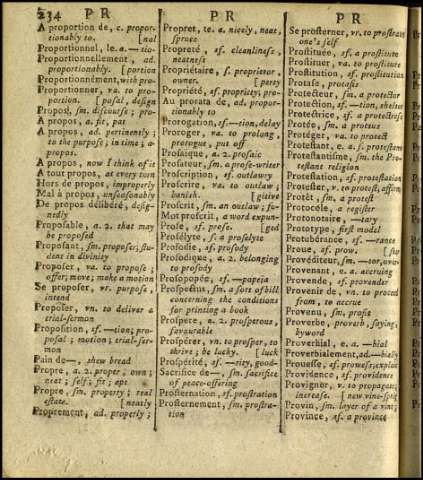 234 P R
P R
P R
A proportion de, c. propor-
tionably to. [nal
Proportionnel, le. a. —tio-
Proportionnellement, ad.
proportionably. [portion
Proportionnément, with pro-
Proportionner, va. to pro-
portion. [posal, design
Propos, sm. discourse; pro-
A propos, a. fit, pat
A propos, ad. pertinently;
to the purpose; in time; a-
propos.
A propos, now I think of it
A tout propos, at every turn
Hors de propos, improperly
Mal à propos, unseasonably
De propos délibéré, desig-
nedly
Proposable, a. 2. that may
be proposed
Proposant, sm. proposer; stu-
dent in divinity
Proposer, va. to propose;
offer; move; make a motion
Se proposer, vr. purpose,
intend
Proposer, vn. to deliver a
trial-sermon
Proposition, sf. —tion; pro-
posal; motion; trial-ser-
mon
Pain de—, shew bread
Propre, a. 2. proper, own;
neat; self; fit; apt
Propre, sm. property; real
estate. [neatly
Proprement, ad. properly;
Propret, te. a. nicely, neat,
spruce
Propreté, sf. cleanliness,
neatness
Propriétaire, s. proprietor,
owner. [perty
Propriété, sf. propriety; pro-
Au prorata de, ad. propor-
tionably to
Prorogation, sf. —tion, delay
Proroger, va. to prolong,
prorogue, put off
Prosaïque, a. 2. prosaic
Prosateur, sm. a prose-writer
Proscription, sf. outlawry
Proscrire, va. to outlaw;
banish. [gitive
Proscrit, sm. an outlaw; fu-
Mot proscrit, a word expun-
Prose, sf. prose. [ged
Prosélyte, s. a proselyte
Prosodie, sf. prosody
Prosodique, a. 2. belonging
to prosody
Prosopopée, sf. —papeia
Prospectus, sm. a sort of bill
concerning the conditions
for printing a book
Prospère, a. 2. prosperous,
favourable
Prospérer, vn. to prosper, to
thrive; be lucky. [luck
Prospérité, sf. —rity, good-
Sacrifice de—, sm. sacrifice
of peace-offering
Prosternation, sf. prostration
Prosternement, sm. prostra-
tion
Se prosterner, vr. to prostrate
one's self
Prostituée, sf. a prostitute
Prostituer, va. to prostitute
Prostitution, sf. prostitution
Protase, protasis
Protecteur, sm. a protector
Protection, sf. —tion, shelter
Protectrice, sf. a protectress
Protée, sm. a proteus
Protéger, va. to protect
Protestant, e. a. s. protestant
Protestantisme, sm. the Pro-
testant religion
Protestation, sf. protestation
Protester, v. to protest, affirm
Protêt, sm. a protest
Protocole, a register
Protonotaire, —tary
Prototype, first model
Protubérance, sf. —rance
Proue, sf. prow.
Provéditeur, sm. —tor,
Provenant, e. a. accruing
Provende, sf. provender
Provenir de, vn. to proceed
from, to accrue
Provenu, sm. profit
Proverbe, proverb, saying,
byword
Proverbial, e. a. —bial
Proverbialement, ad. —bially
Prouesse, sf. prowess; exploit
Providence, sf. providence
Provigner, v. to propagate;
increase. [new vine-sprig
Provin, sm. layer of a vine;
Province, sf. a province